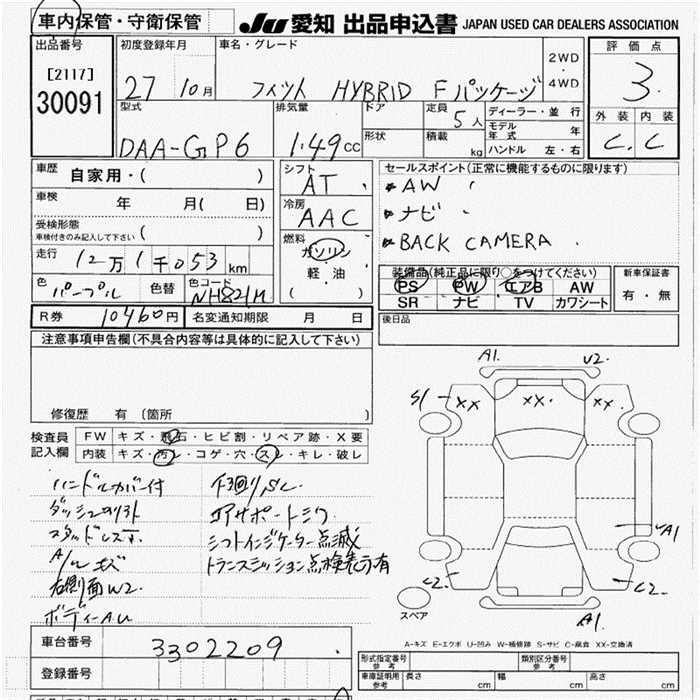 車内保管・守衛保管 JU 愛知 出品申込書 JAPAN USED CAR DEALERS ASSOCIATION
出品番号 初度登録年月 車名・グレード 2WD・4WD 評価点
[2117] 27 10月 フィット HYBRID Fパッケージ 3
30091
型式 排気量 ドア 定員 5人 ディーラー・並行 外装 内装
DAA-GP6 1.49cc 形状 積載 kg モデル年式 年 C. C
ハンドル 左・右
車歴 自家用・( ) シフト AT セールスポイント(正常に機能するものに限ります)
車検 年 月( 日) 冷房 AAC AW
受検形態 ナビ
車検付きのみ記入して下さい ( ) 燃料 ガソリン BACK CAMERA
走行 12万1千053km 軽油
色 パープル 色替 色コード NH821M ( )
装備品(純正品に限り○をつけてください) 新車保証書
PS PW エアB AW 有・無
SR ナビ TV カワシート
R券 10460円 名変通知期限 月 日 後日品
注意事項申告欄(不具合内容等は具体的に記入して下さい)
修復歴 有 (箇所 )
検査員記入欄 FW キズ・飛石・ヒビ割・リペア跡・X要
内装 キズ・汚レ・コゲ・穴・スレ・キレ・破レ
ハンドルカバー付 下回りSレ
エアサポートミワ
スタッドレス シフトインジケーター点滅
A/Wキズ トランスミッション点検表示有
右側面W2
ボディーAU
A1. U2.
S1 XX XX XX
A1
C2 C2.
スペア A1.
A-キズ E-エクボ U-凹み W-補修跡 S-サビ C-腐食 XX-交換済
車台番号 3302209
登録番号
形式指定番号 参考 類別区分番号 参考
車庫証明用 参考 長さ cm 幅 cm 高さ cm